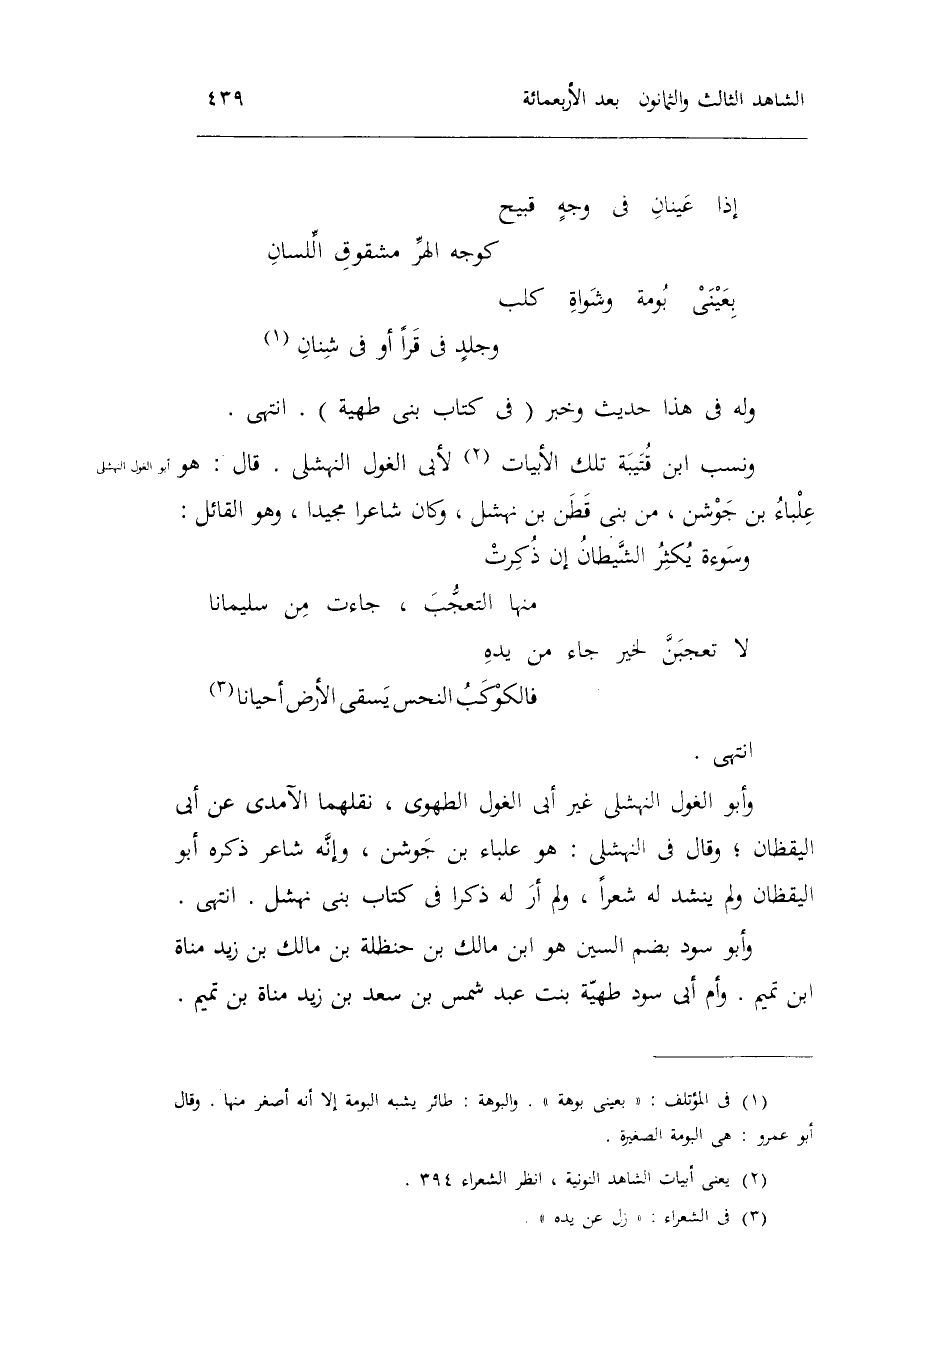 الشاهد الثالث والثمانون بعد الأربعمائة ٤٣٩
إذا عَينانِ فى وجهٍ قبيح
كوجه الهرِّ مشقوقِ الِّلسانِ
بِعَيْنَىْ بُومة وشَواةِ كلب
وجلدٍ فى قَراً أو فى شِنانِ (١)
وله فى هذا حديث وخبر ( فى كتاب بنى طهية ) . انتهى .
ونسب ابن قُتَيبَة تلك الأبيات (٢) لأبى الغول النهشلى . قال : هو أبو الغول النهشلى
عِلْباءُ بن جَوْشن ، من بنى قَطَن بن نهشل ، وكان شاعرا مجيدا ، وهو القائل :
وسَوءة يُكثِرُ الشَّيطانُ إن ذُكِرتْ
منها التعجُّبَ ، جاءت مِن سليمانا
لا تعجبَنَّ لخير جاء من يدهِ
فالكوْكَبُ النحس يَسقى الأرض أحيانا (٣)
انتهى .
وأبو الغول النهشلى غير أبى الغول الطهوى ، نقلهما الآمدى عن أبى
اليقظان ؛ وقال فى النهشلى : هو علباء بن جَوشن ، وإنَّه شاعر ذكره أبو
اليقظان ولم ينشد له شعراً ، ولم أرَ له ذكرا فى كتاب بنى نهشل . انتهى .
وأبو سود بضم السين هو ابن مالك بن حنظلة بن مالك بن زيد مناة
ابن تميم . وأم أبى سود طهيّة بنت عبد شمس بن سعد بن زيد مناة بن تميم .
(١) فى المؤتلف : « بعينى بوهة » . والبوهة : طائر يشبه البومة إلا أنه أصغر منها . وقال
أبو عمرو : هى البومة الصغيرة .
(٢) يعنى أبيات الشاهد النونية ، انظر الشعراء ٣٩٤ .
(٣) فى الشعراء : « زل عن يده » .